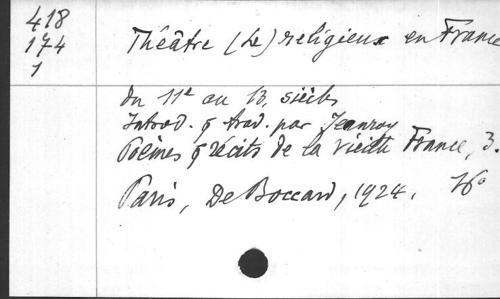 418
174
1
Théâtre (Le) religieux en France
du 11e au 13. siècles
Introd. & trad. par Jeanroy
Poèmes & récits de la vieille France, 3.
Paris, De Boccard, 1924. 16°